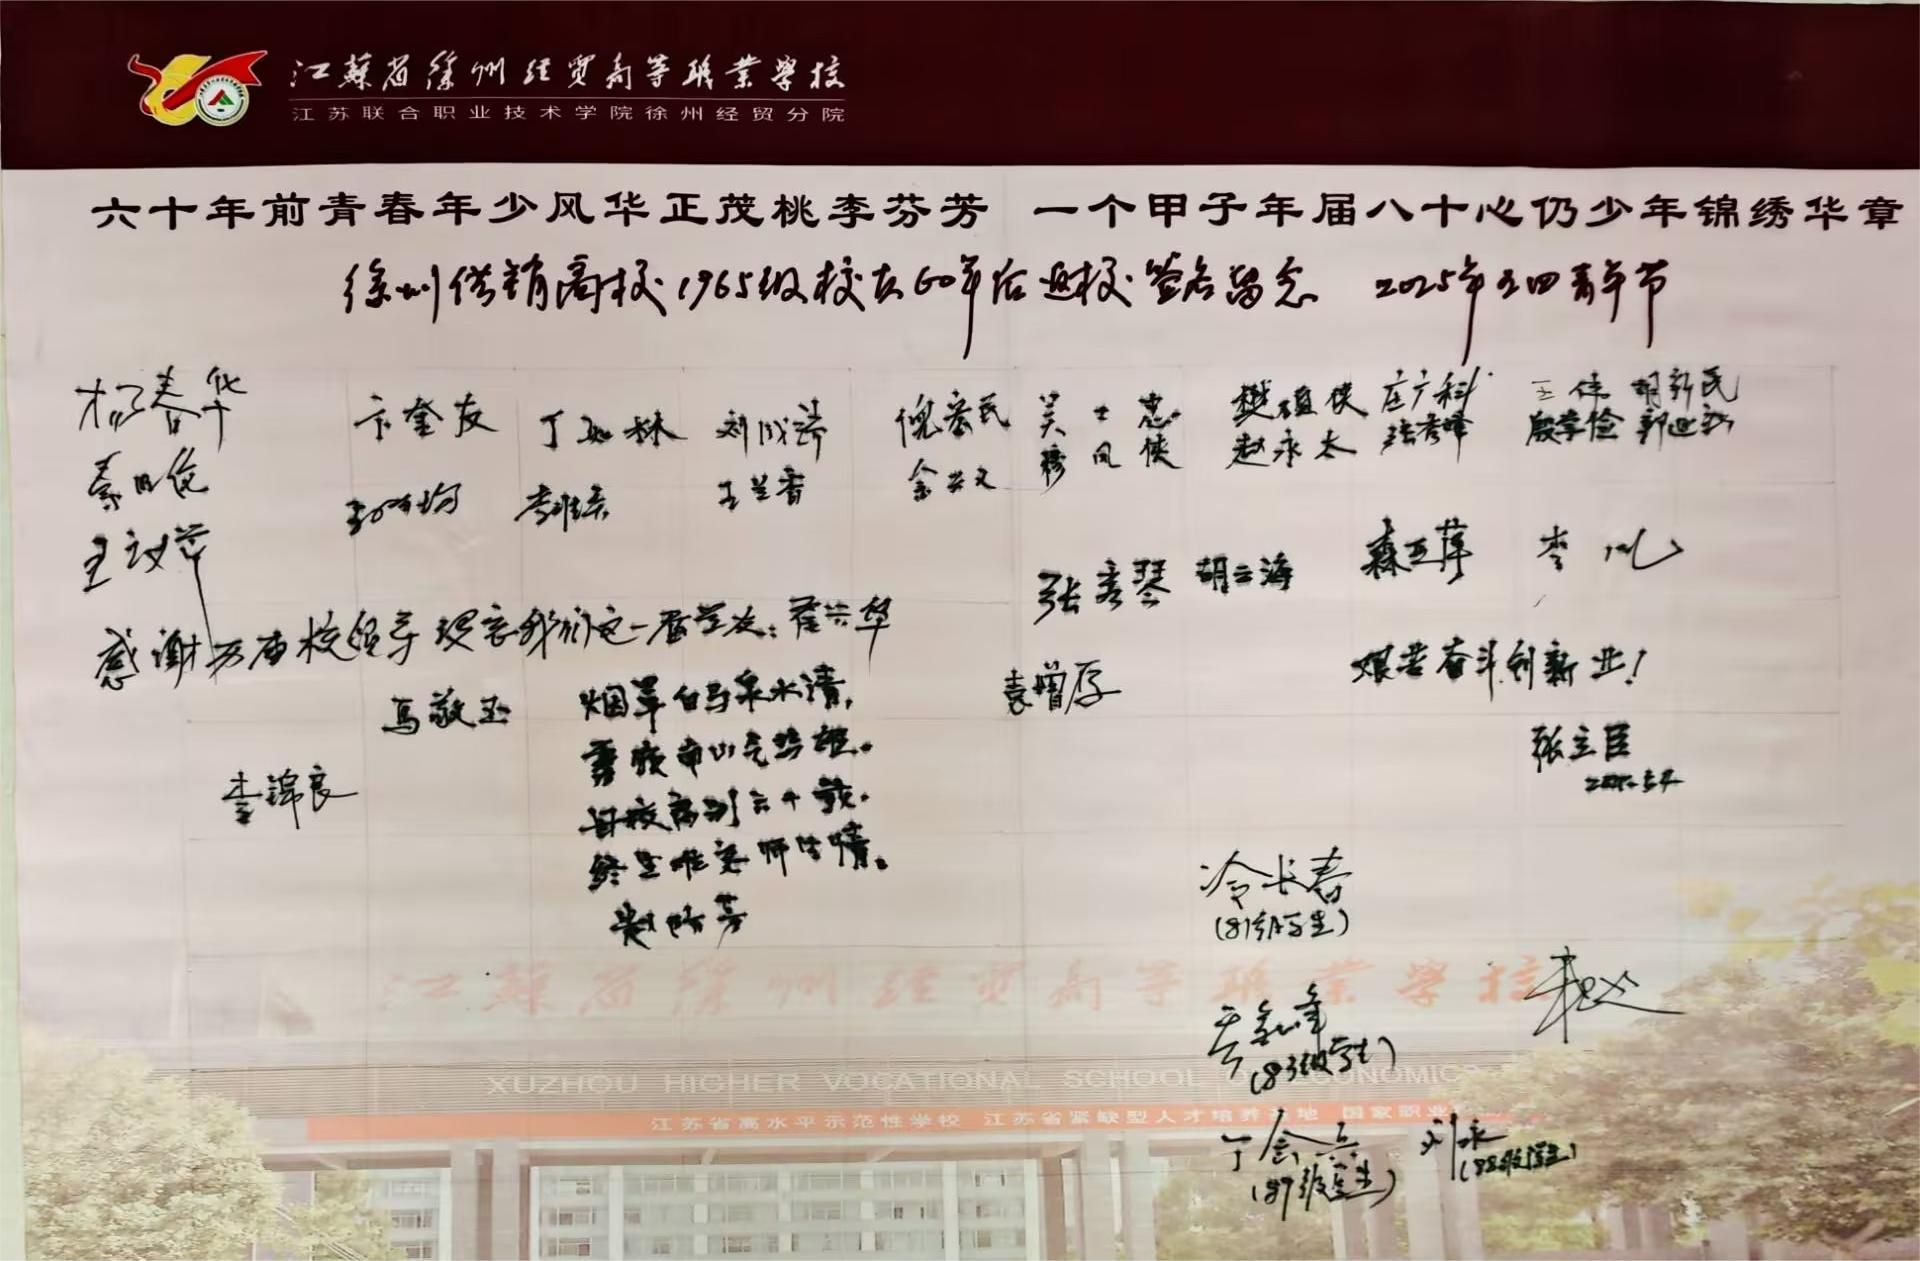 江苏省徐州经贸高等职业学校
江苏联合职业技术学院徐州经贸分院
六十年前青春年少风华正茂桃李芬芳 一个甲子年届八十心仍少年锦绣华章
徐州供销商校1965级校友60年后返校签名留念 2025年五四青年节
杨春华
卞奎友 丁 林 刘成 倪宏民 吴士忠 樊 侠 庄广科 王伟 胡新民
穆凤侠 赵永太 张秀峰 殷学俭 郭迎新
秦 俊
李 王兰香
王 萍
张秀琴 胡云海 森亚萍 李
感谢历届校领导 我们这一届学友：崔兴华
艰苦奋斗创新业！
马敬玉 袁增厚
烟 白马泉水清，
云龙 山气势雄。
母校离别六十载，
终生难忘师生情。
赵 芳
李锦良
张立臣
冷长春
(81级学生)
江苏省徐州经贸高等职业学校
(83级学生)
XUZHOU HIGHER VOCATIONAL SCHOOL OF ECONOMICS
江苏省高水平示范性学校 江苏省紧缺型人才培养基地 国家职业
丁会兵 刘永
(87级学生) (88级学生)